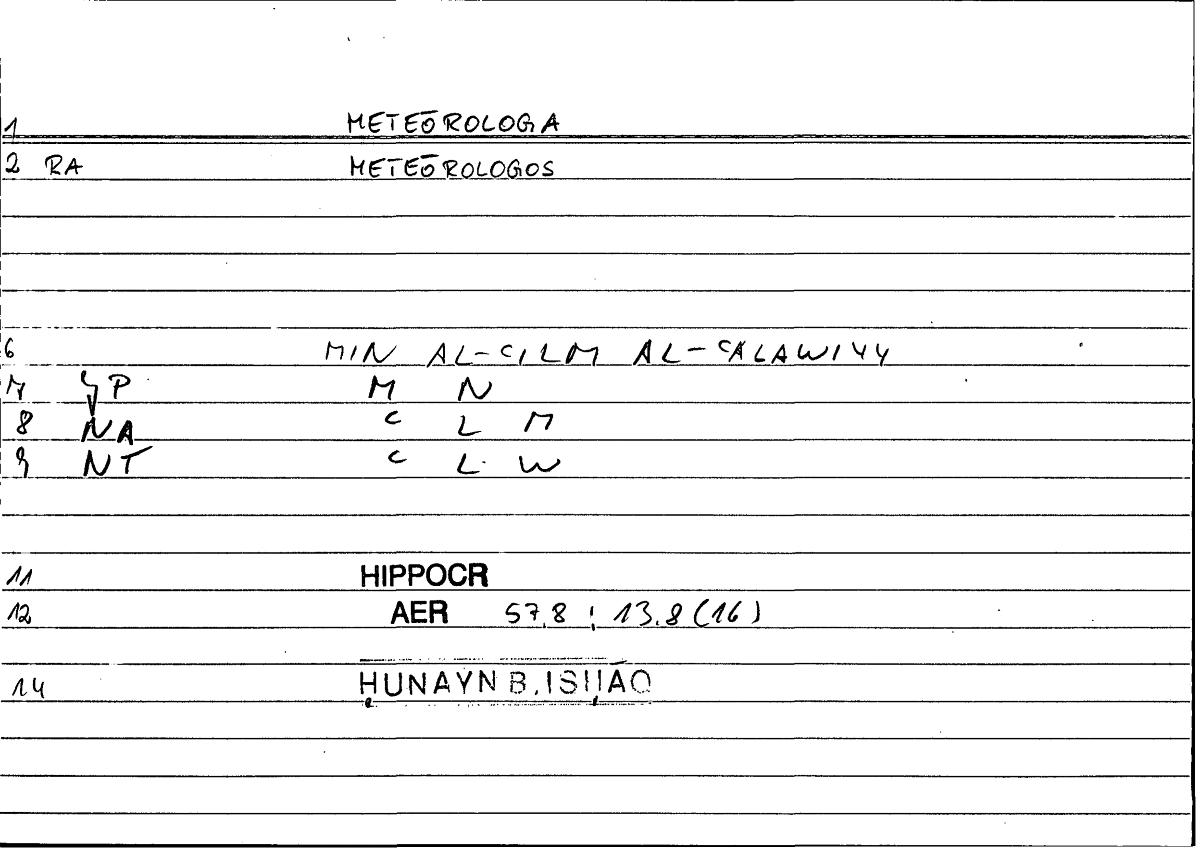 1 METEŌROLOGA
2 RA METEŌROLOGOS
6 MIN AL-CILM AL-CALAWIYY
M N
8 NA C L M
9 NT C L W
11 HIPPOCR
12 AER 57,8 ; 13.8 (16)
14 ḤUNAYN B. ISḤĀQ